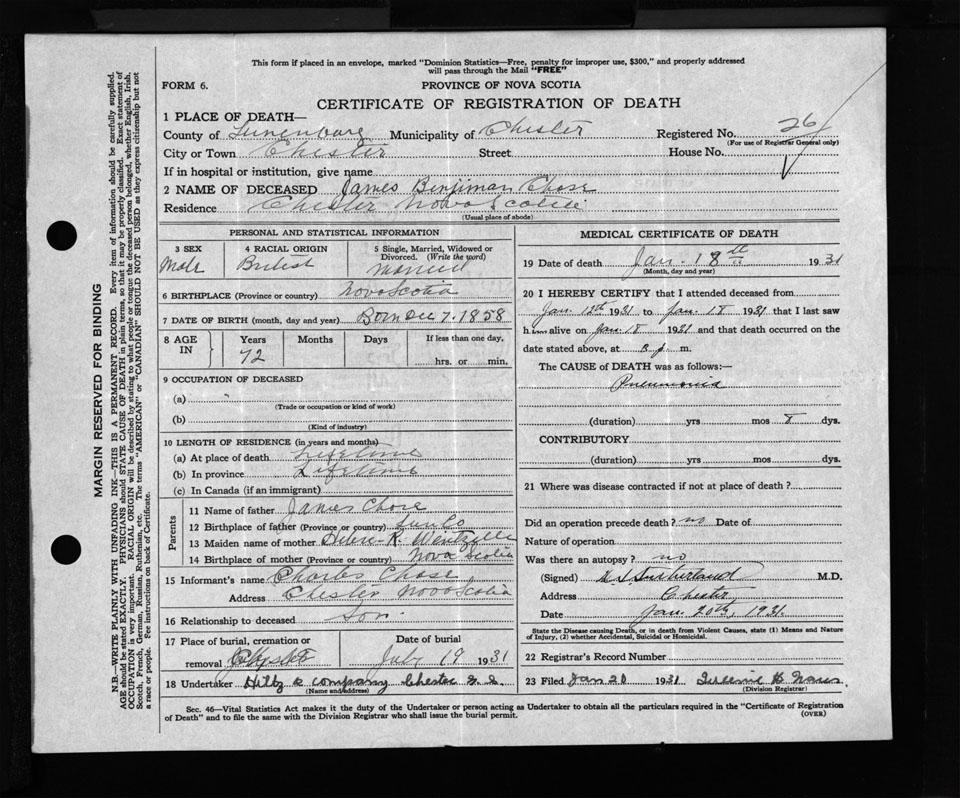 This form if placed in an envelope, marked "Dominion Statistics—Free, penalty for improper use, $300," and properly addressed
will pass through the Mail "FREE"
FORM 6.
PROVINCE OF NOVA SCOTIA
CERTIFICATE OF REGISTRATION OF DEATH
1 PLACE OF DEATH—
County of Lunenburg Municipality of Chester Registered No. 26
(For use of Registrar General only)
City or Town Chester Street House No.
If in hospital or institution, give name
2 NAME OF DECEASED James Benjiman Chase
Residence Chester Nova Scotia
(Usual place of abode)
PERSONAL AND STATISTICAL INFORMATION
3 SEX
Male
4 RACIAL ORIGIN
British
5 Single, Married, Widowed or
Divorced. (Write the word)
Married
6 BIRTHPLACE (Province or country) Nova Scotia
7 DATE OF BIRTH (month, day and year) Born Dec 7. 1858
8 AGE
IN
Years
72
Months
Days
If less than one day,
hrs. or min.
9 OCCUPATION OF DECEASED
(a) "
(Trade or occupation or kind of work)
(b)
(Kind of industry)
10 LENGTH OF RESIDENCE (in years and months)
(a) At place of death Lifetime
(b) In province Lifetime
(c) In Canada (if an immigrant)
Parents
11 Name of father James Chase
12 Birthplace of father (Province or country) Lun Co
13 Maiden name of mother K.
14 Birthplace of mother (Province or country) Nova Scotia
15 Informant's name Charles Chase
Address Chester Nova Scotia
16 Relationship to deceased Son
17 Place of burial, cremation or
removal Chester
Date of burial
19 1931
18 Undertaker Hiltz & Company Chester N. S.
(Name and address)
MEDICAL CERTIFICATE OF DEATH
19 Date of death Jan. 18th 1931
(Month, day and year)
20 I HEREBY CERTIFY that I attended deceased from
Jan. 12th 1931 to Jan. 18 1931 that I last saw
him alive on Jan. 18 1931 and that death occurred on the
date stated above, at m.
The CAUSE of DEATH was as follows:—
Pneumonia
(duration) yrs mos 8 dys.
CONTRIBUTORY
(duration) yrs mos dys.
21 Where was disease contracted if not at place of death?
Did an operation precede death? no Date of
Nature of operation
Was there an autopsy? no
(Signed) Sutherland M.D.
Address Chester
Date Jan. 20th, 1931.
State the Disease causing Death, or in death from Violent Causes, state (1) Means and Nature
of Injury, (2) whether Accidental, Suicidal or Homicidal.
22 Registrar's Record Number
23 Filed Jan 20 1931
(Division Registrar)
Sec. 46—Vital Statistics Act makes it the duty of the Undertaker or person acting as Undertaker to obtain all the particulars required in the "Certificate of Registration
of Death" and to file the same with the Division Registrar who shall issue the burial permit.
(OVER)
MARGIN RESERVED FOR BINDING
N.B.—WRITE PLAINLY WITH UNFADING INK—THIS IS A PERMANENT RECORD. Every item of information should be carefully supplied.
AGE should be stated EXACTLY. PHYSICIANS should STATE CAUSE OF DEATH in plain terms, so that it may be properly classified. Exact statement of
OCCUPATION is very important. RACIAL ORIGIN will be described by stating to what people or tongue the deceased person belonged, whether English, Irish,
Scotch, French, German, Russian, Ruthenian, etc. The terms "AMERICAN" or "CANADIAN" SHOULD NOT BE USED as they express citizenship but not
a race or people. See instructions on back of Certificate.